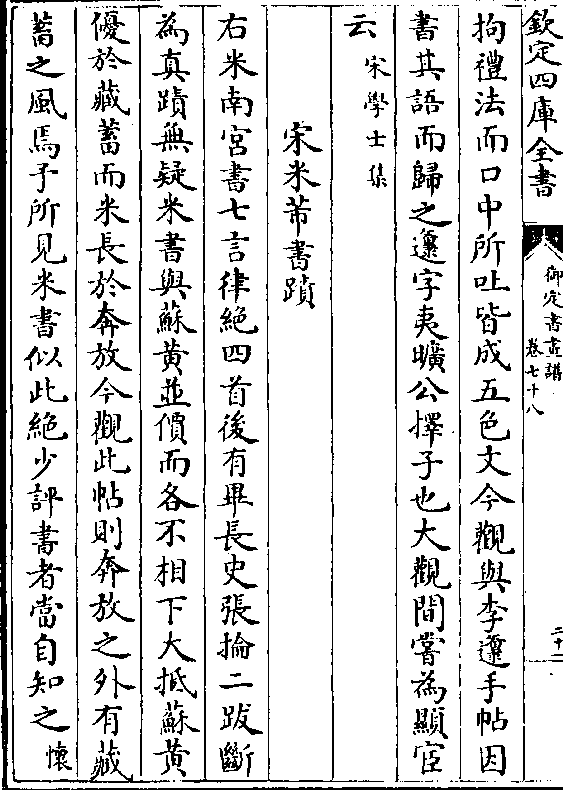 欽定四庫全書
御定書畫譜
卷七十八
二十二
拘禮法而口中所吐皆成五色文今觀與李邍手帖因
書其語而歸之邍字夷曠公擇子也大觀間嘗為顯宦
云宋學士集
宋米芾書蹟
右米南宮書七言律絶四首後有畢長史張掄二跋斷
為真蹟無疑米書與蘇黃並價而各不相下大抵蘇黃
優於藏蓄而米長於奔放今觀此帖則奔放之外有藏
蓄之風焉予所見米書似此絶少評書者當自知之懷